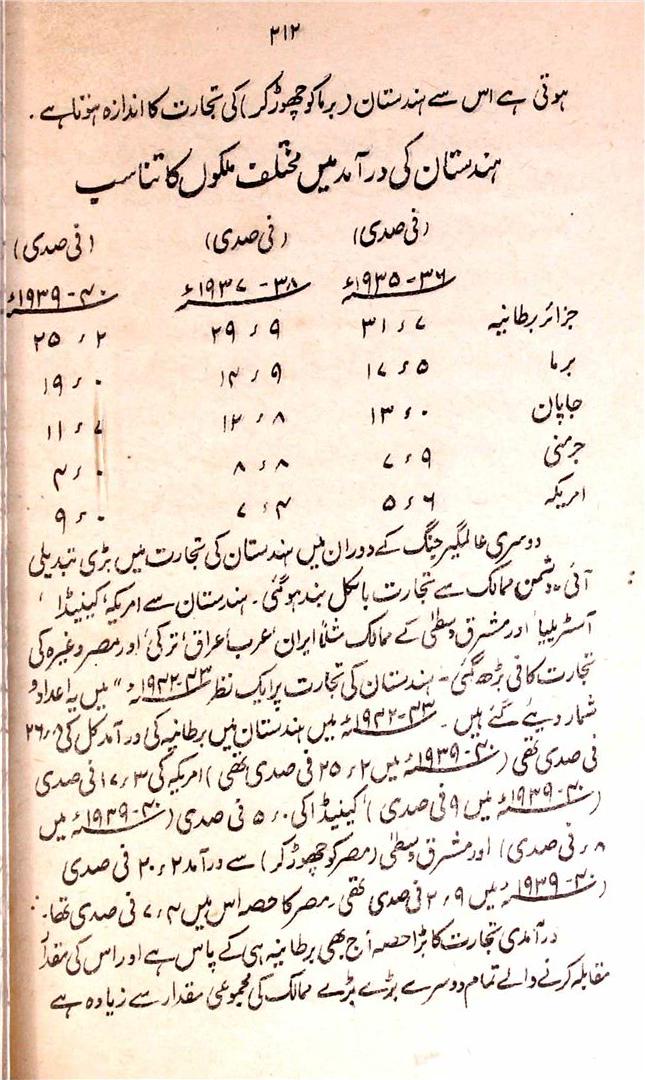 ۲۱۲
ہوتی ہے اس سے ہندستان (برما کو چھوڑ کر) کی تجارت کا اندازہ ہوتا ہے ۔
ہندستان کی درآمد میں مختلف ملکوں کا تناسب
(فی صدی) (فی صدی) (فی صدی)
۱۹۳۵-۳۶ء ۱۹۳۷-۳۸ء ۱۹۳۹-۴۰ء
جزائر برطانیہ ۳۱ء۷ ۲۹ء۹ ۲۵ء۲
برما ۱۷ء۵ ۱۴ء۹ ۱۹ء۰
جاپان ۱۳ء۰ ۱۲ء۸ ۱۱ء۷
جرمنی ۷ء۹ ۸ء۸ ۴ء۰
امریکہ ۵ء۶ ۷ء۴ ۹ء۰
دوسری عالمگیر جنگ کے دوران میں ہندستان کی تجارت میں بڑی تبدیلی
آئی۔ دشمن ممالک سے تجارت بالکل بند ہوگئی۔ ہندستان سے امریکہ، کینیڈا،
آسٹریلیا، اور مشرق وسطیٰ کے ممالک مثلاً ایران، عرب، عراق، ترکی، اور مصر وغیرہ کی
تجارت کافی بڑھ گئی۔ ہندستان کی تجارت پر ایک نظر ۱۹۴۲-۴۳ء“ میں یہ اعداد و
شمار دیئے گئے ہیں۔ ۱۹۴۲-۴۳ء میں ہندستان میں برطانیہ کی درآمد کل کی ۲۶ء
فی صدی تھی (۱۹۳۹-۴۰ء میں ۲۵ء۲ فی صدی تھی) امریکہ کی ۱۷ء۳ فی صدی
(۱۹۳۹-۴۰ء میں ۹ فی صدی)، کینیڈا کی ۵ء۰ فی صدی (۱۹۳۹-۴۰ء میں
ء۸ فی صدی) اور مشرق وسطیٰ (مصر کو چھوڑ کر) سے درآمد ۲۰ء۲ فی صدی
(۱۹۳۹-۴۰ء میں ۲ء۹ فی صدی تھی۔ مصر کا حصہ اس میں ۷ء۴ فی صدی تھا۔
درآمدی تجارت کا بڑا حصہ آج بھی برطانیہ ہی کے پاس ہے اور اس کی مقدار
مقابلہ کرنے والے تمام دوسرے بڑے بڑے ممالک کی مجموعی مقدار سے زیادہ ہے